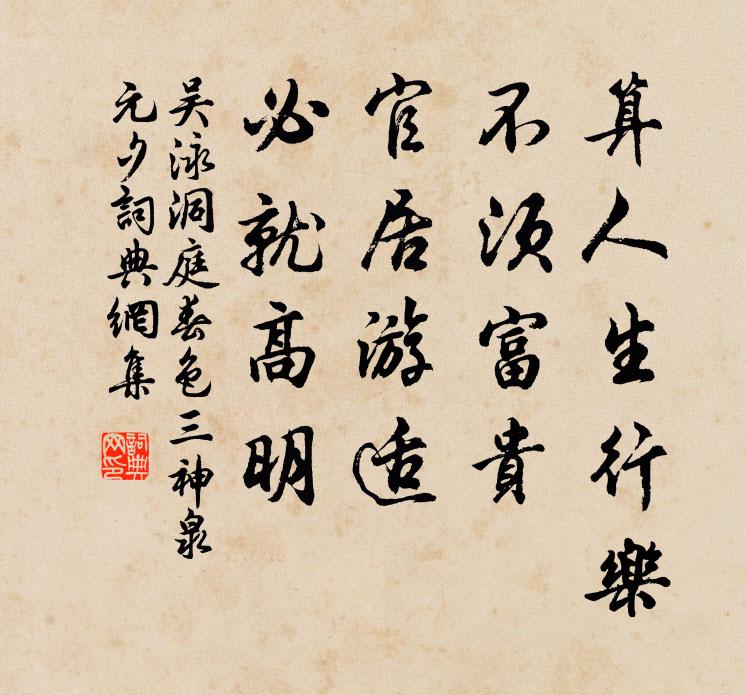 算人生行樂
不須富貴
官居游适
必就高明
吴泳洞庭春色三神泉
元夕詞典網集
詞典网印